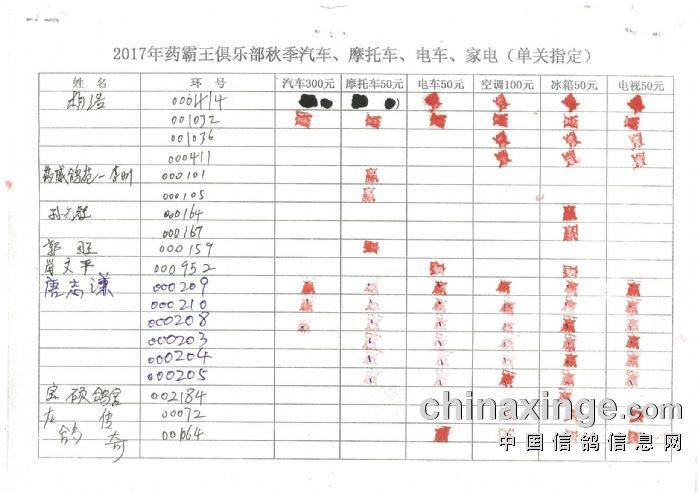 2017年药霸王俱乐部秋季汽车、摩托车、电车、家电（单关指定）
姓名 环号 汽车300元 摩托车50元 电车50元 空调100元 冰箱50元 电视50元
杨浩 000414
001032
001036
000411
000101 赢
000105 赢
000164 赢
000167
郭 000159
尚文平 000952
唐志谦 000209
000210
000208
000203
000204
000205
宝硕鸽舍 002184
左传 00072
鸽奇 00064
chinaxinge.com
中国信鸽信息网